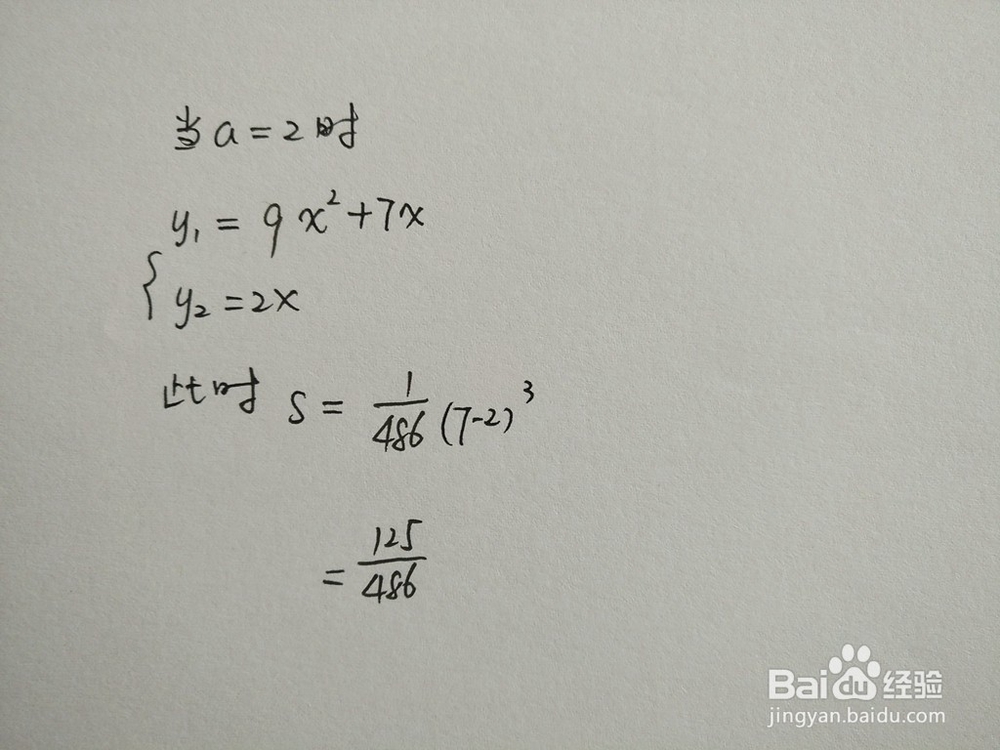 当a=2时
y₁=9x²+7x
{y₂=2x
此时 S=1/486(7-2)³
=125/486
Baidu经验
jingyan.baidu.com